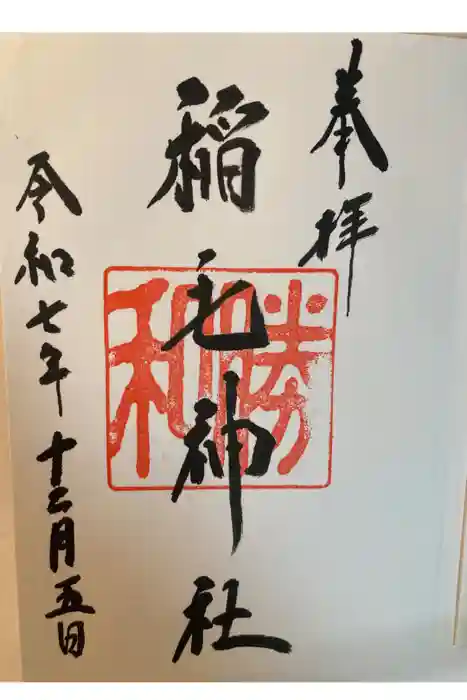 奉拝
稲毛神社
勝和
令和七年十二月五日